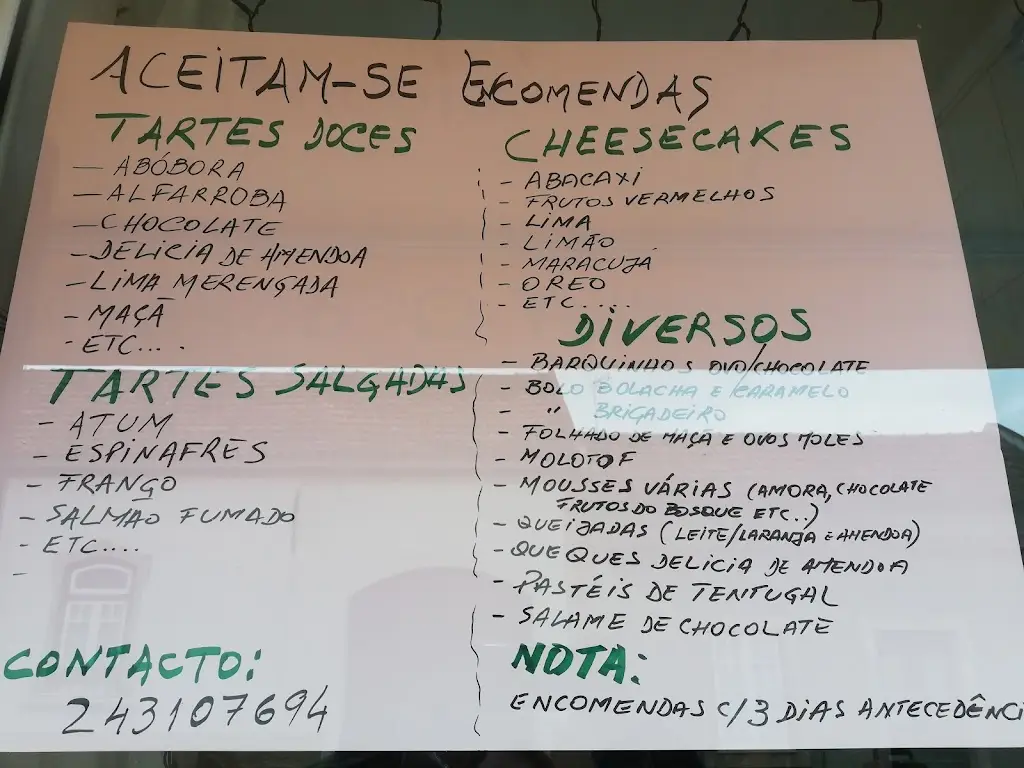 ACEITAM-SE ENCOMENDAS
TARTES DOCES
- ABÓBORA
- ALFARROBA
- CHOCOLATE
- DELICIA DE AMENDOA
- LIMA MERENGADA
- MAÇÃ
- ETC... .
TARTES SALGADAS
- ATUM
- ESPINAFRES
- FRANGO
- SALMÃO FUMADO
- ETC....
-
CONTACTO:
243107694
CHEESECAKES
- ABACAXI
- FRUTOS VERMELHOS
- LIMA
- LIMÃO
- MARACUJA
- OREO
- ETC....
DIVERSOS
- BARQUINHOS OVO/CHOCOLATE
- BOLO BOLACHA E CARAMELO
- " BRIGADEIRO
- FOLHADO DE MAÇÃ E OVOS MOLES
- MOLOTOF
- MOUSSES VÁRIAS (AMORA, CHOCOLATE
FRUTOS DO BOSQUE ETC..)
- QUEIJADAS (LEITE/LARANJA E AMENDOA)
- QUEQUES DELICIA DE AMENDOA
- PASTÉIS DE TENTUGAL
- SALAME DE CHOCOLATE
NOTA:
ENCOMENDAS C/3 DIAS ANTECEDÊNCI